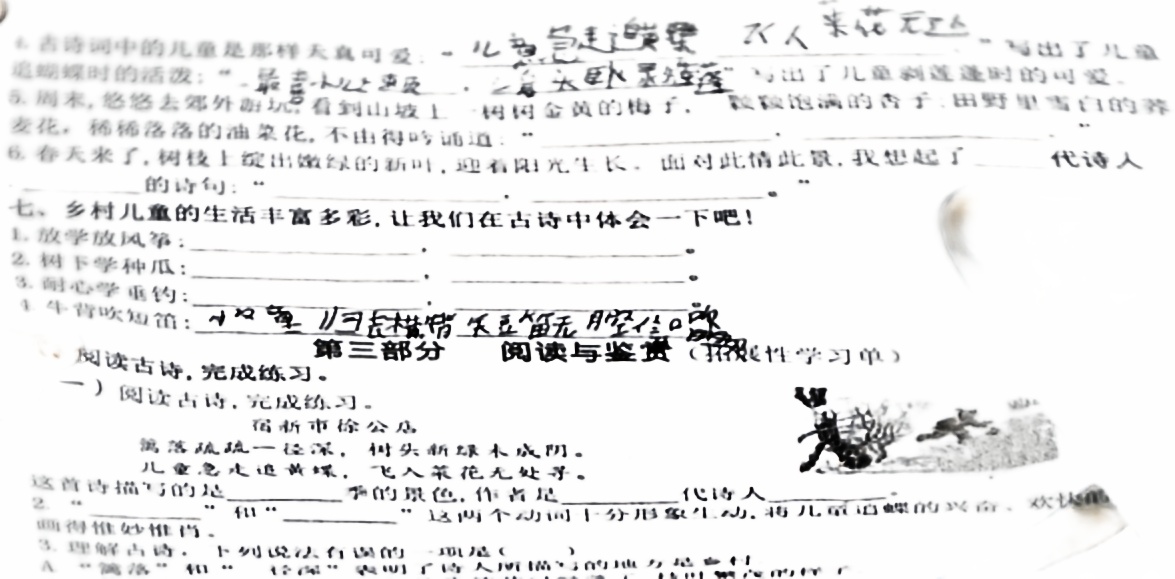 4. 古诗词中的儿童是那样天真可爱:“儿童急走追黄蝶 飞入菜花无” 写出了儿童
追蝴蝶时的活泼;“最喜小儿, 头卧剥莲蓬”写出了儿童剥莲蓬时的可爱。
5. 周末,悠悠去郊外游玩,看到山坡上一树树金黄的梅子,一颗颗饱满的杏子,田野里雪白的荞
麦花,稀稀落落的油菜花,不由得吟诵道:“ , 。”
6. 春天来了,树枝上绽出嫩绿的新叶,迎着阳光生长。面对此情此景,我想起了 代诗人
的诗句:“ , 。”
七、乡村儿童的生活丰富多彩,让我们在古诗中体会一下吧!
1. 放学放风筝: , 。
2. 树下学种瓜: , 。
3. 耐心学垂钓: , 。
4. 牛背吹短笛: 归 横 笛无腔信口吹
第三部分 阅读与鉴赏(拓展性学习单)
阅读古诗,完成练习。
一)阅读古诗,完成练习。
宿新市徐公店
篱落疏疏一径深,树头新绿未成阴。
儿童急走追黄蝶,飞入菜花无处寻。
这首诗描写的是 季的景色,作者是 代诗人 。
2. “ ”和“ ”这两个动词十分形象生动,将儿童追蝶的兴奋、欢快
画得惟妙惟肖。
3. 理解古诗,下列说法有误的一项是( )
A. “篱落”和“一径深”表明了诗人所描写的地方是乡村